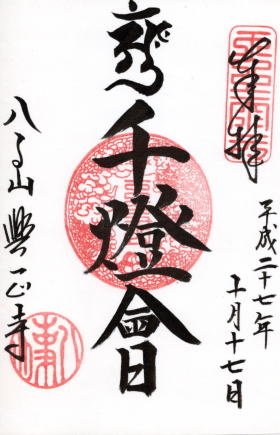 奉拝
平成二十七年
十月十七日
千燈會
八事山興正寺